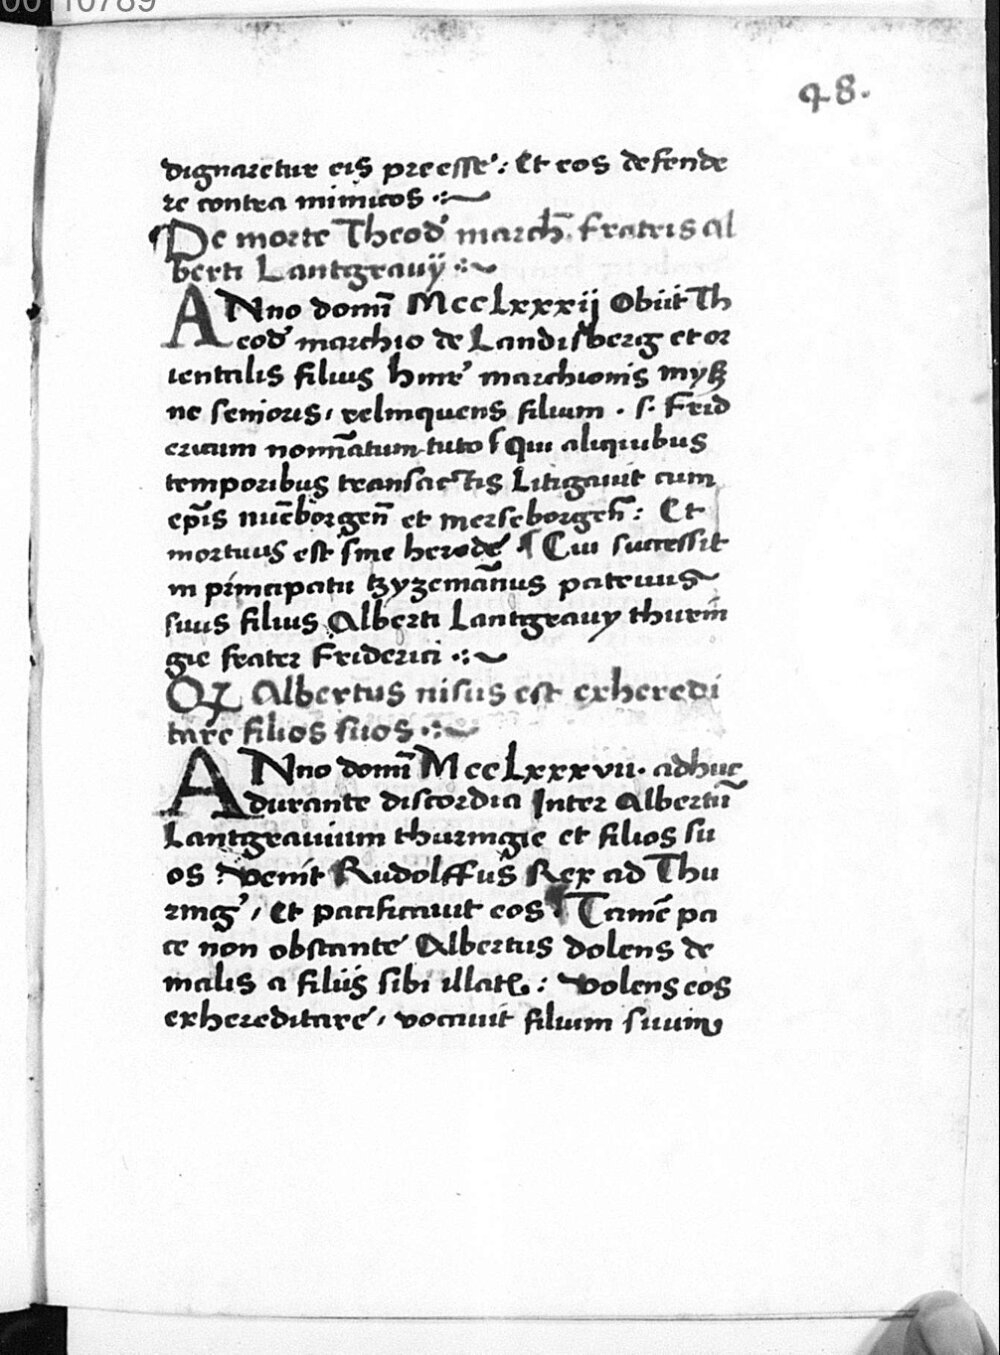 00110789
48.
dignaretur eis preesse': Et eos defende
re contra inimicos ·:~
¶De morte Theod' march̄. fratris Al
berti Lantgravij ·:~
ANno domī MccLxxxij Obiit Th
eod' marchio de Landisberg et or
ientalis filius hinr' marchionis mysz
ne senioris, relinquens filium . s. Frid
ericum nomīatum tuto ſ Qui aliquibus
temporibus transactis Litigavit cum
ep̄is nuēborgen̄ et merseborgen̄: Et
mortuus est sine herede' ¶ Cui successit
in principatu tzyzemān̄us patruus
suus filius Alberti Lantgravy thurin
gie frater Friderici ·:~
Qz Albertus nisus est exheredi
tare filios suos ·:~
ANno domī MccLxxxvii. adhuc
durante discordia Inter Albertū
Lantgravium thuringie et filios su
os : venit Rudolffus Rex ad Thu
ring', Et pacificavit eos ¶ Tamē pa
ce non obstante' Albertus dolens de
malis a filiis sibi illatꝭ : volens eos
exhereditare', vocavit filium suum